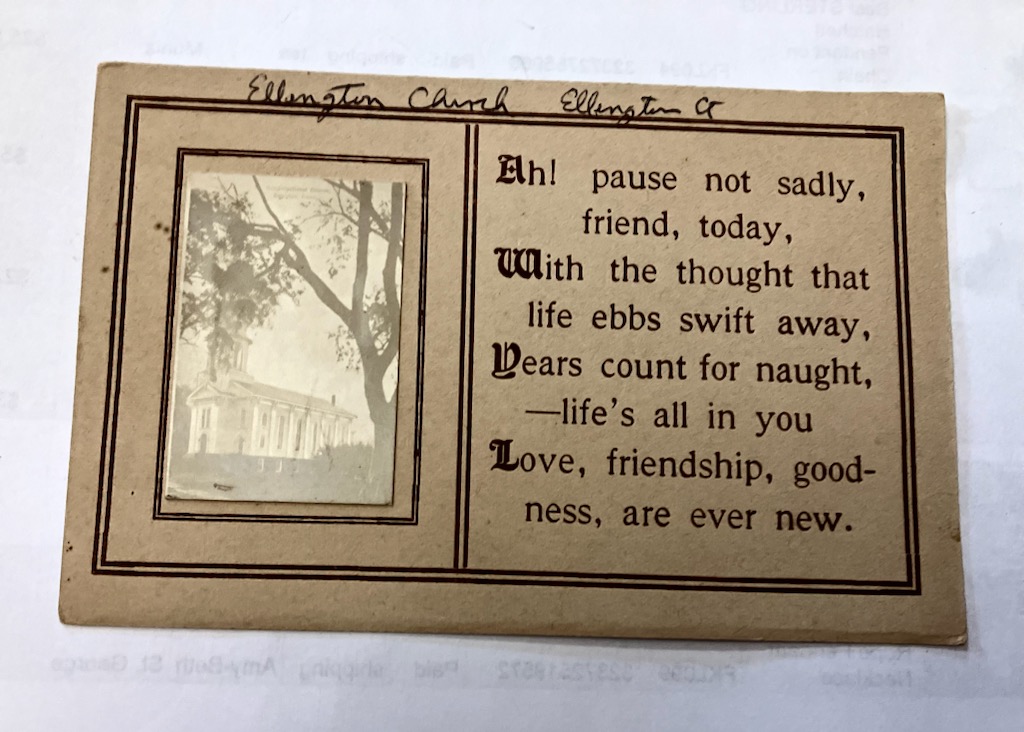 Ellington Church Ellington Ct
Ah! pause not sadly,
friend, today,
With the thought that
life ebbs swift away,
Years count for naught,
—life's all in you
Love, friendship, good-
ness, are ever new.